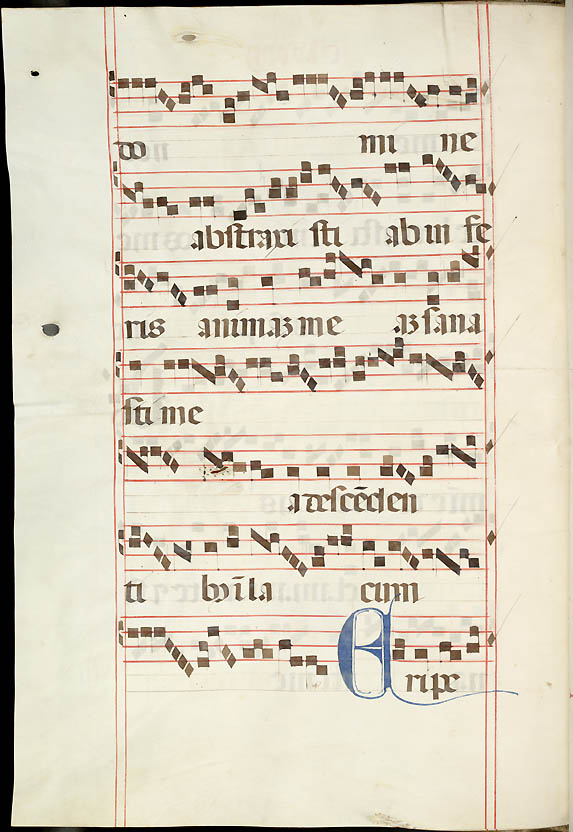 do mi ne
abstraxi sti ab in fe
ris animaz me az sana
sti me
a descēden
ti b9 ī la cum
Eripe